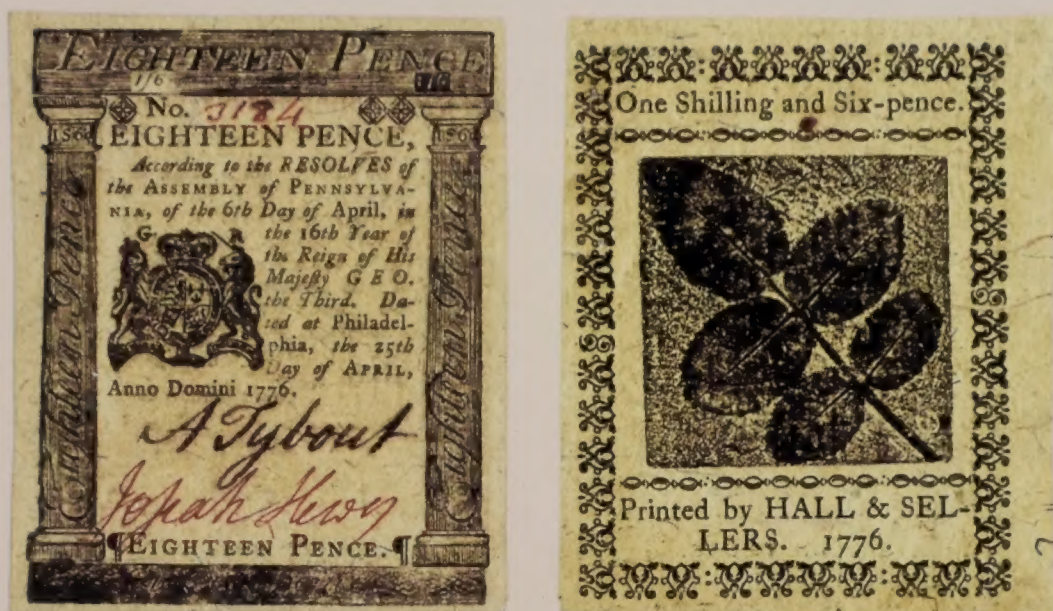 EIGHTEEN PENCE
1/6 1/6
No. 3184
EIGHTEEN PENCE,
According to the RESOLVES of
the ASSEMBLY of PENNSYLVA-
NIA, of the 6th Day of April, in
G R
the 16th Year of
the Reign of His
Majesty GEO.
the Third. Da-
ted at Philadel-
phia, the 25th
Day of APRIL,
Anno Domini 1776.
A Tybout
Josiah Hewes
EIGHTEEN PENCE.
Eighteen Pence
Eighteen Pence
One Shilling and Six-pence.
Printed by HALL & SEL-
LERS. 1776.